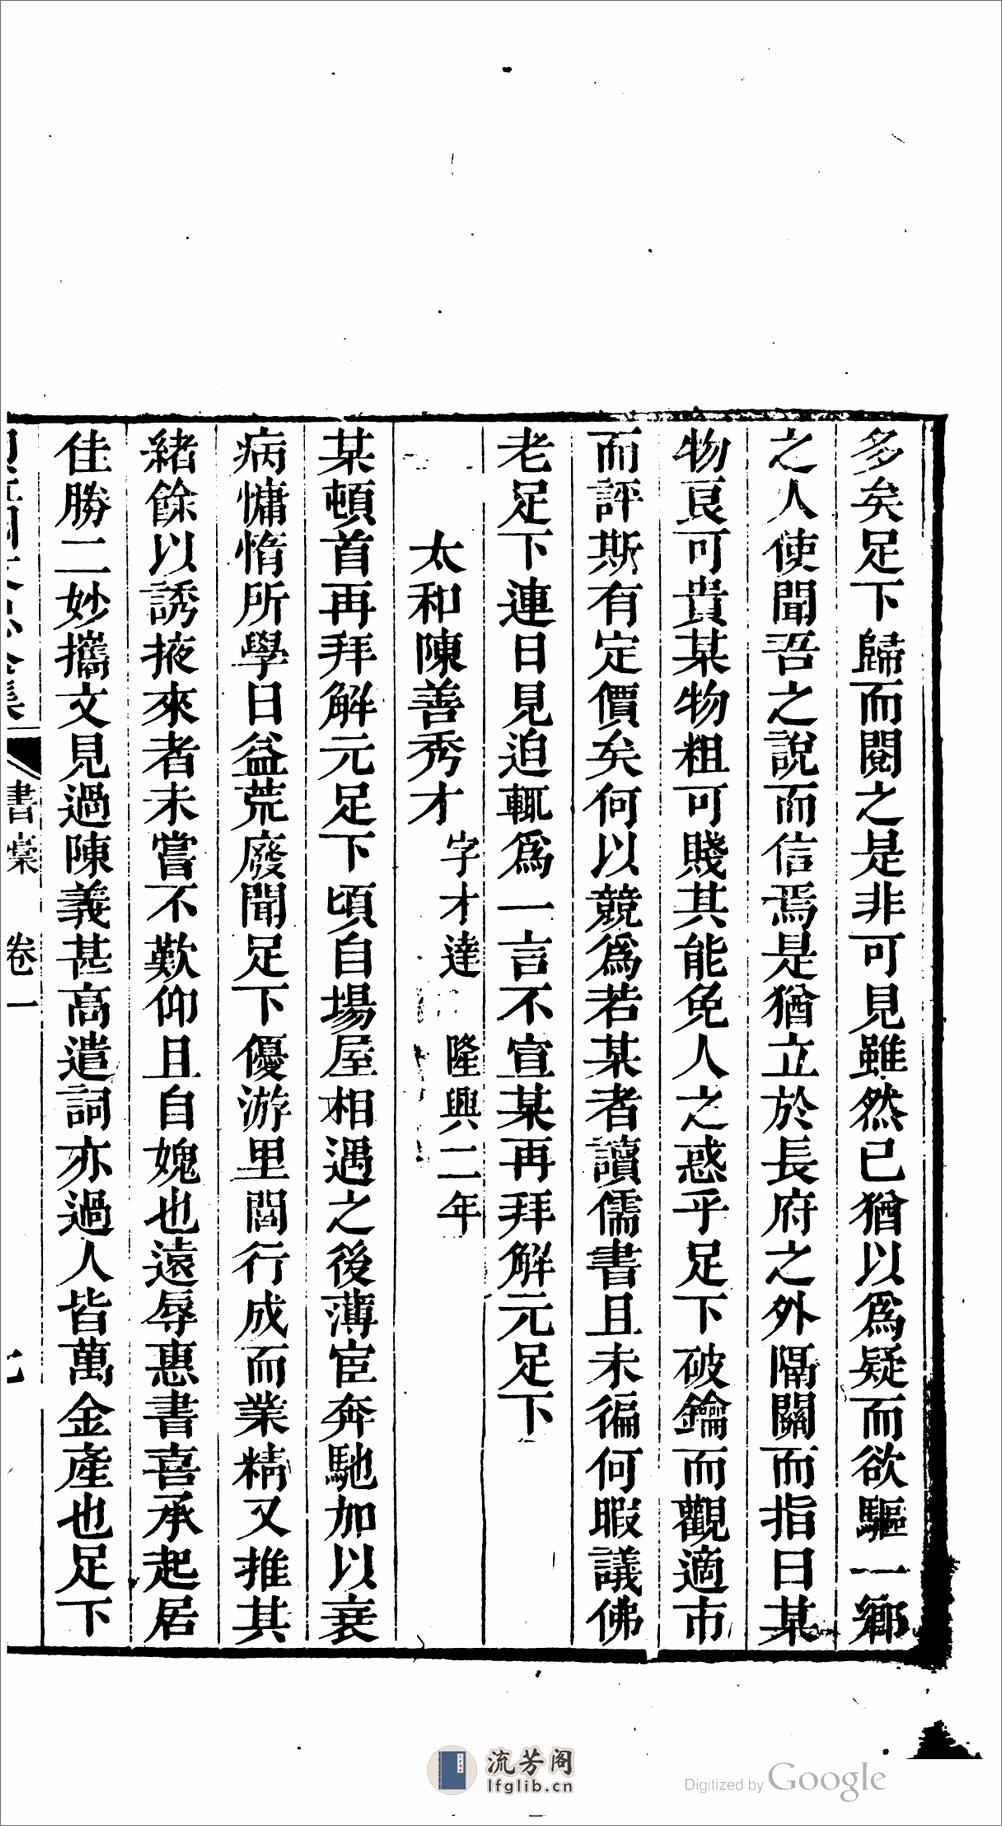 多矣足下歸而閱之是非可見雖然已猶以爲疑而欲驅一鄉
之人使聞吾之說而信焉是猶立於長府之外隔關而指曰某
物良可貴某物粗可賤其能免人之惑乎足下破鑰而觀適市
而評斯有定價矣何以競爲若某者讀儒書且未徧何暇議佛
老足下連日見迫輒爲一言不宣某再拜解元足下
太和陳善秀才 字才達 隆興二年
某頓首再拜解元足下頃自場屋相遇之後薄宦奔馳加以衰
病慵惰所學日益荒廢聞足下優游里閭行成而業精又推其
緒餘以誘掖來者未嘗不歎仰且自媿也遠辱惠書喜承起居
佳勝二妙攜文見過陳義甚高遣詞亦過人皆萬金產也足下
書稾 卷一
流芳阁
lfglib.cn
Digitized by Google